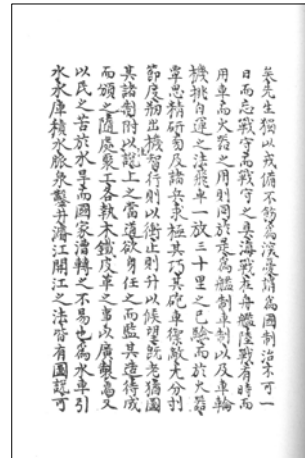 矣先生獨以戎備不飭爲深憂謂爲國制治不可一
日而忘戰守而戰守之具海戰在舟艦陸戰有時而
用車而火器之用則同於是爲艦制車制以及車輪
機排自運之法飛車一放三十里之已驗而於火器
覃思精硏旁及諸兵求極其巧其砲車襟敵尤分刌
節度刱出機智行則以衝止則升以候望旣老猶圖
其諸制附以說上之當道欲身任之而監其造待成
而頒之隨處聚工各執木鐵皮革之事以廣製焉又
以民之苦於水旱而國家漕轉之不易也爲水車引
水水庫積水脈泉鑿井濬江開江之法皆有圖說可